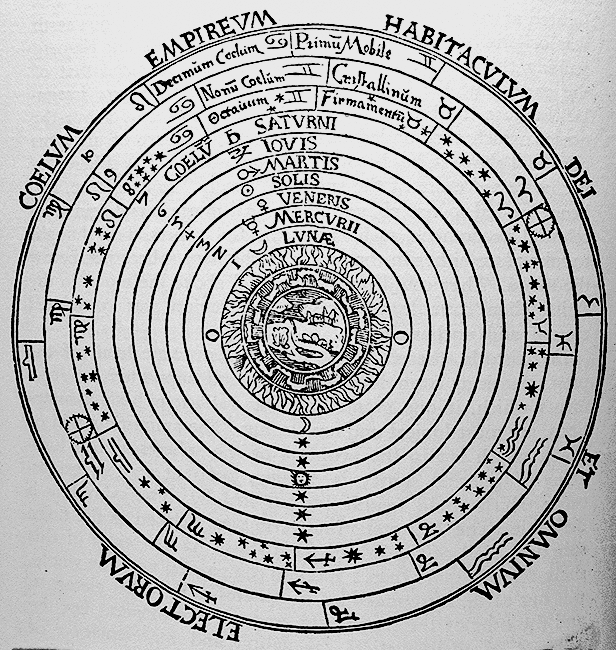 COELVM EMPIREVM HABITACVLVM DEI ET OMNIVM ELECTORVM
Decimum Coelum Primū Mobile
Nonū Coelum Cristallinum
9
Octauum Firmamentū
8
COELV SATVRNI
7
IOVIS
6
MARTIS
5
SOLIS
4
VENERIS
3
MERCVRII
2
LVNÆ
1